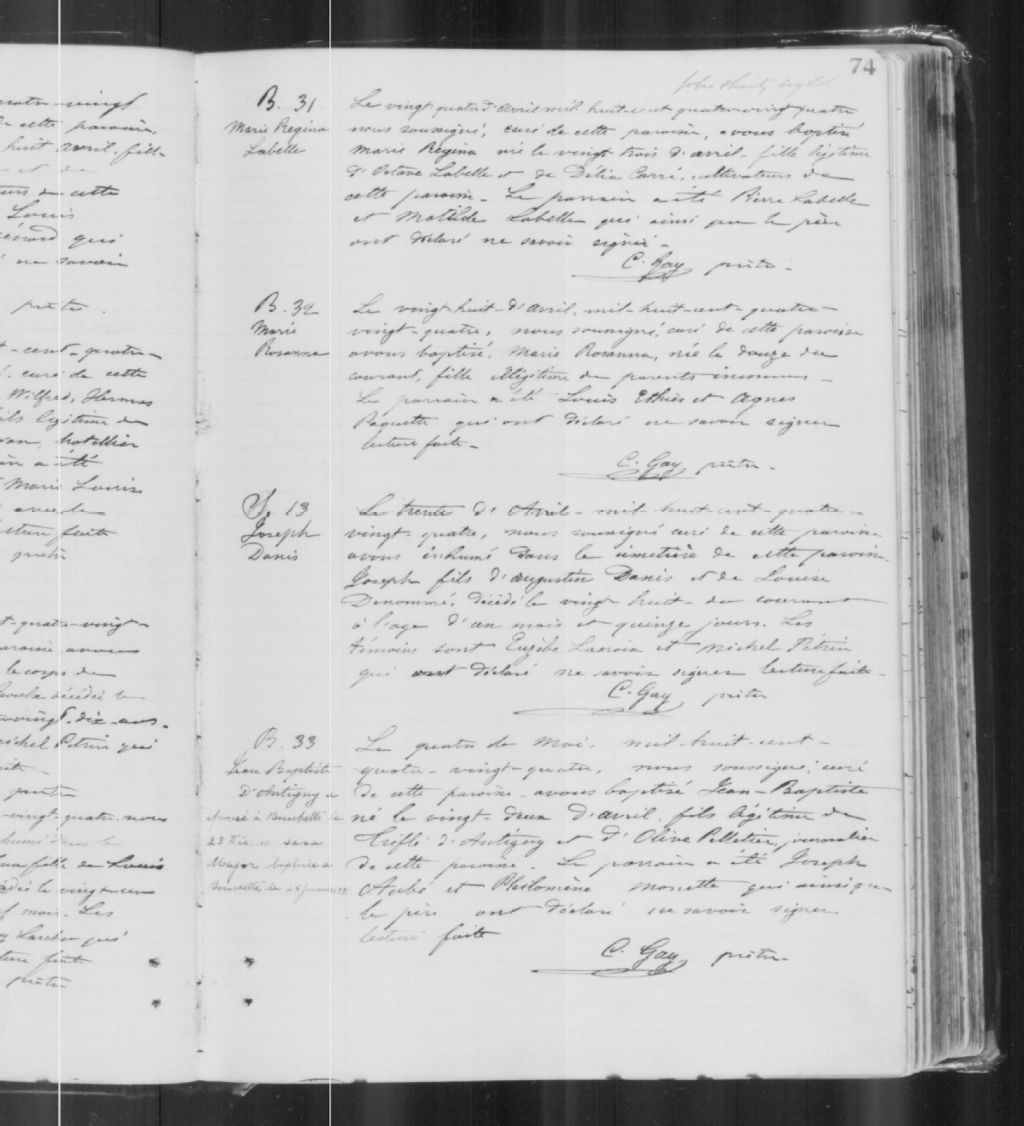 uatre-vingt
de cette paroisse,
huit avril, fill-
et de
teurs de cette
Louis
énard qui
ne savoir
prêtre.
t-cent-quatre-
curé de cette
Wilfred, Hermas
fils légitime de
hotellier
a été
Marie Louise
avec le
lecture faite
prêtre
t-quatre-vingt-
paroisse avons
le corps de
décédé le
vingt-dix-ans.
Michel Petrin qui
prêtre
-vingt-quatre, nous
inhumé dans le
fille de Louis
décédé le vingt-un
mois. Les
Larcher qui
lecture faite
prêtre
74
folio
B. 31
Marie Regina
Labelle
Le vingt quatre d'Avril mil huit-cent quatre-vingt quatre
nous soussigné, curé de cette paroisse, avons baptisé
Marie Regina née le vingt trois d'avril- fille légitime
d'Octave Labelle et de Délia Carré, cultivateurs de
cette paroisse- Le parrain a été Pierre Labelle
et Matilde Labelle qui ainsi que le père
ont déclaré ne savoir signer-
C. Gay prêtre-
B. 32
Marie
Rosanna
Le vingt-huit-d'avril, mil-huit-cent-quatre-
vingt-quatre, nous soussigné, curé de cette paroisse
avons baptisé, Marie Rosanna, née le douze du
courant, fille illégitime de parents inconnus-
Le parrain a été Louis Ethier et Agnes
Paquette qui ont déclaré ne savoir signer
lecture faite-
C. Gay prêtre-
S. 13
Joseph
Danis
Le trente d'Avril- mil huit cent-quatre-
vingt-quatre, nous soussigné curé de cette paroisse
avons inhumé dans le cimetière de cette paroisse,
Joseph fils d'Augustin Danis et de Louise
Denommé, décédé le vingt huit- du courant
à l'age d'un mois et quinze jours. Les
témoins sont Eugèbe Lacroix et Michel Pétrin
qui ont déclaré ne savoir signer lecture faite-
C. Gay prêtre
B. 33
Jean Baptiste
D'Antigny a
épousé à
23 Déc. Sara
Mayer baptisée à
le
Le quatre de Mai, mil-huit-cent-
quatre-vingt-quatre, nous soussigné, curé
de cette paroisse- avons baptisé Jean-Baptiste
né le vingt deux d'avril, fils légitime de
Trefflé d'Antigny et d'Olive Pelletier, journalier
de cette paroisse. Le parrain a été Joseph
Aubé et Philomène Monette qui ainsi que
le père ont déclaré ne savoir signer
lecture faite
C. Gay prêtre-